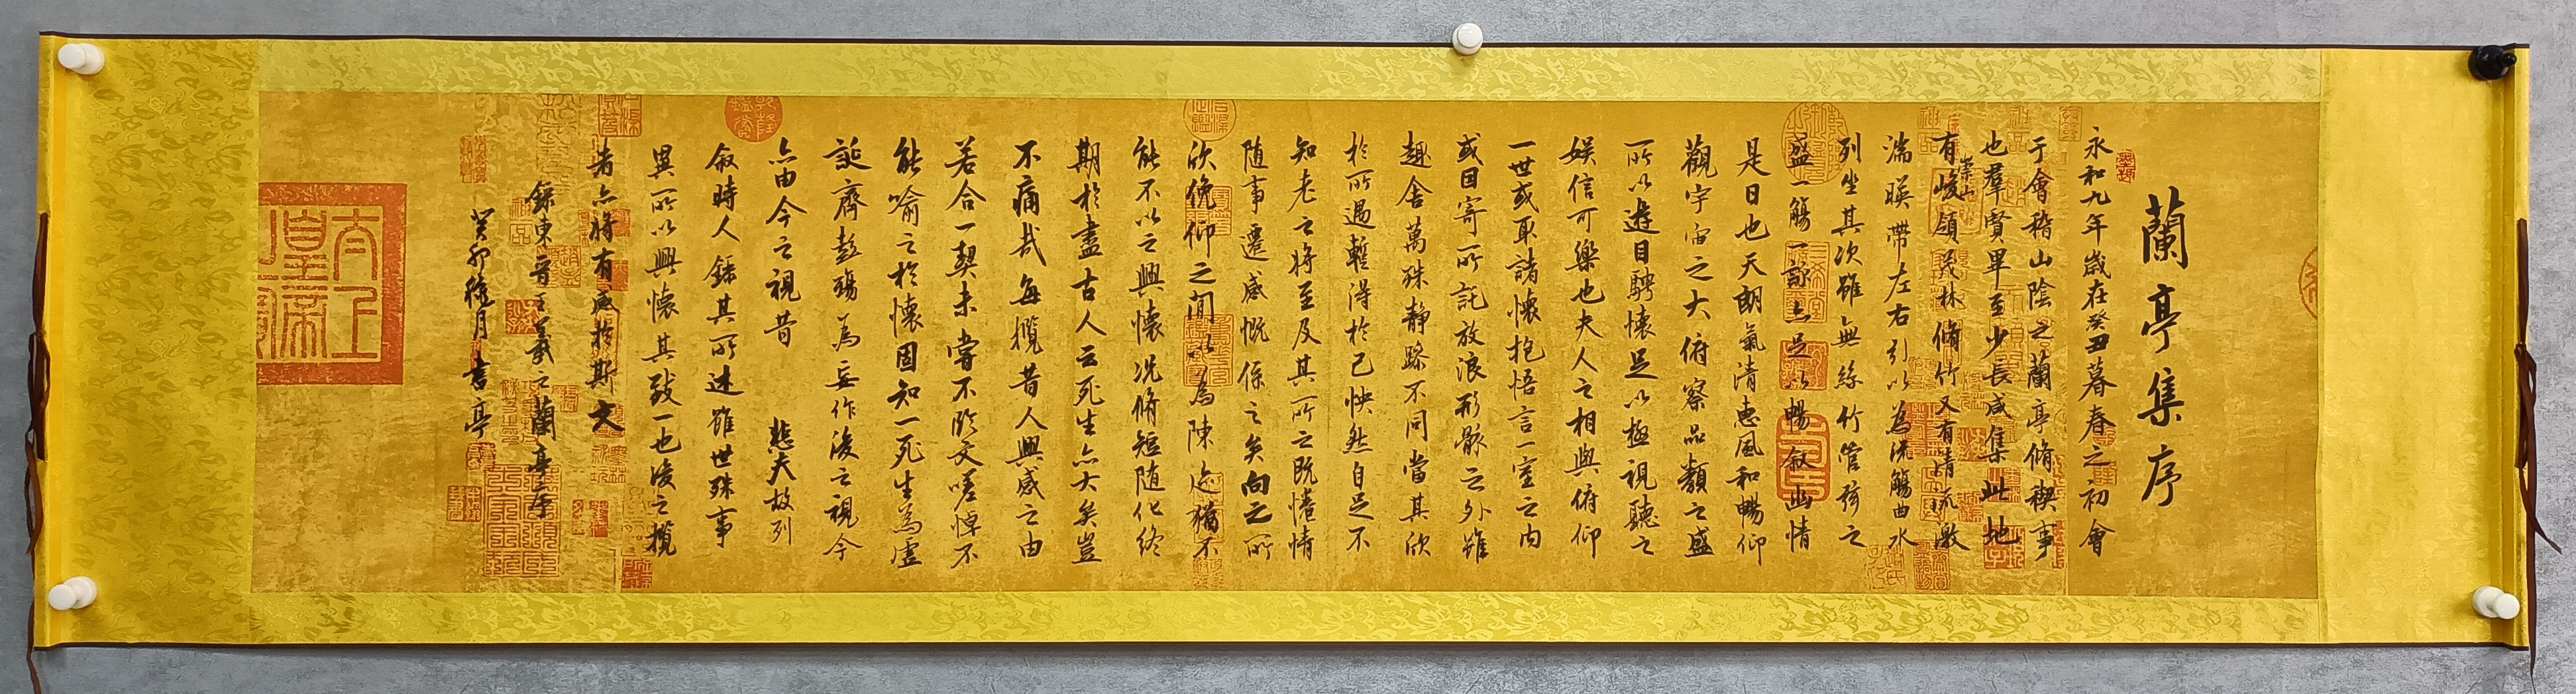 蘭亭集序
永和九年歲在癸丑暮春之初會
于會稽山陰之蘭亭脩禊事
也羣賢畢至少長咸集此地
有崇山峻領茂林脩竹又有清流激
湍暎帶左右引以為流觴曲水
列坐其次雖無絲竹管弦之
盛一觴一詠亦足以暢敘幽情
是日也天朗氣清惠風和暢仰
觀宇宙之大俯察品類之盛
所以遊目騁懷足以極視聽之
娛信可樂也夫人之相與俯仰
一世或取諸懷抱悟言一室之內
或因寄所託放浪形骸之外雖
趣舍萬殊靜躁不同當其欣
於所遇蹔得於己怏然自足不
知老之將至及其所之既惓情
隨事遷感慨係之矣向之所
欣俛仰之間以為陳迹猶不
能不以之興懷況脩短隨化終
期於盡古人云死生亦大矣豈
不痛哉每攬昔人興感之由
若合一契未嘗不臨文嗟悼不
能喻之於懷固知一死生為虛
誕齊彭殤為妄作後之視今
亦由今之視昔 悲夫故列
敘時人錄其所述雖世殊事
異所以興懷其致一也後之攬
者亦將有感於斯文
錄東晉王羲之蘭亭序
癸卯 月書亭
太上皇帝